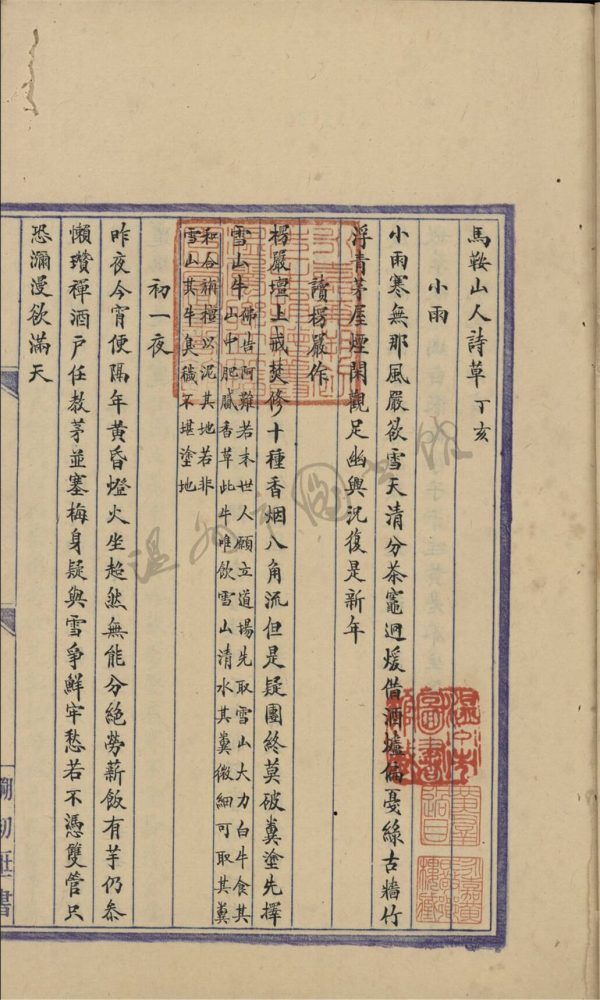 馬鞍山人詩草 丁亥
小雨
小雨寒無那風嚴欲雪天清分茶竈迥煖借酒壚偏憂綠古牆竹
浮青茅屋煙閑觀足幽興況復是新年
讀楞嚴作
楞嚴壇上戒焚修十種香烟八角流但是疑團終莫破糞塗先擇
雪山牛 佛告阿難若末世人願立道場先取雪山大力白牛食其
山中肥膩香草此牛唯飲雪山清水其糞微細可取其糞
和合栴檀以泥其地若非
雪山其牛臭穢不堪塗地
初一夜
昨夜今宵便隔年黃昏燈火坐超然無能分絕勞薪飯有芋仍參
懶瓚禪酒戶任教茅並塞梅身疑與雪爭鮮牢愁若不憑雙管只
恐瀰漫欲滿天
溫州市
圖書
館藏
黃羣
敬鄉樓藏
溫州市圖書館